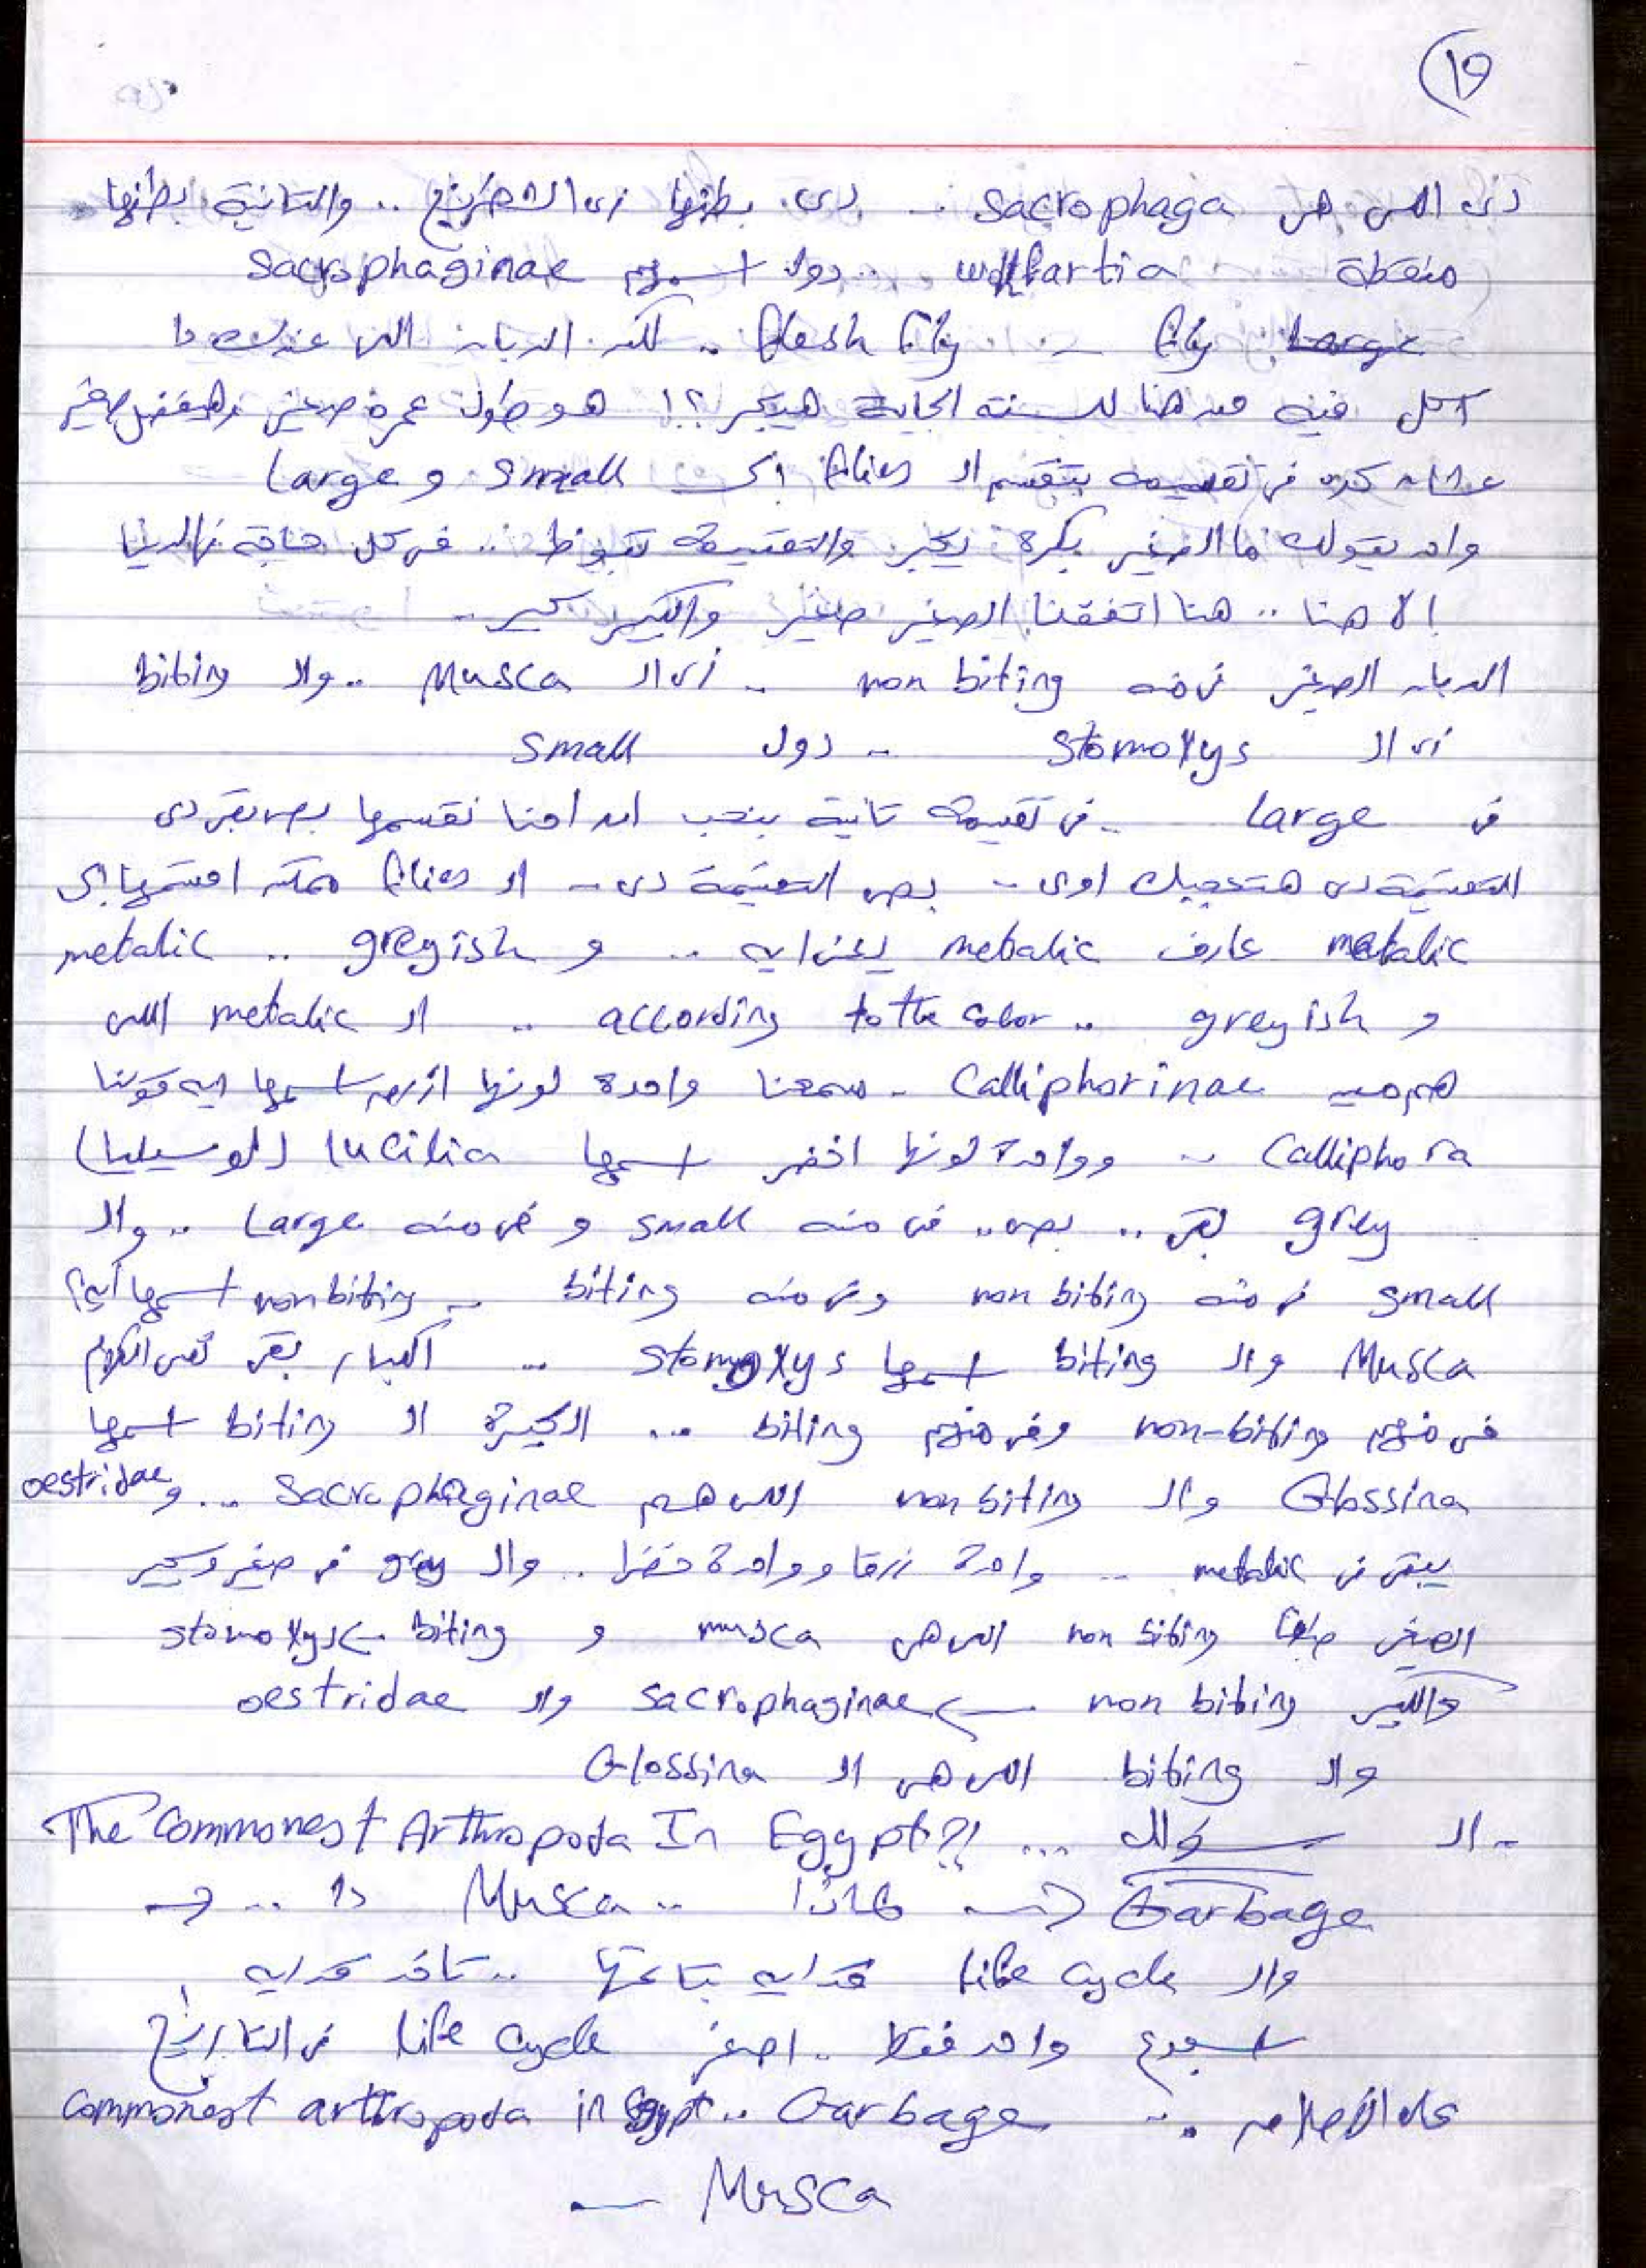 (19)
دى اللى هى sacrophaga .. دى بطنها زى الشطرنج .. والتانية بطنها
منقطة wolfartia .. دول اسمهم Sacrophaginae
fly .. flesh fly .. لكن الدبان اللى عندك دا
اكل فيه من هنا للسنة الجاية هيكبر ؟! هو طول عمره صغير وهيفضل صغير
عشان كده فى تقسيمه بتقسم الـ flies الى small و Large
واحد يقولك ما الصغير بكرة يكبر والتقسيمة تبوظ .. فى كل حاجة فى الدنيا
الا هنا .. هنا اتفقنا الصغير صغير والكبير كبير ..
الدبان الصغير فى منه non biting .. زى الـ Musca .. والـ biting
زى الـ stomoxys .. دول small
فى large .. فى تقسيمة تانية بنحب ان احنا نقسمها بص بقى دى
التقسيمة دى هتعجبك اوى .. بص التقسيمة دى .. الـ flies ممكن اقسمها الى
metalic عارف metalic يعنى ايه .. و greyish .. metalic
و greyish .. according to the color .. الـ metalic اللى
هم مين Calliphorinae .. سمعنا واحدة لونها ازرق اسمها ايه قولنا
Calliphora .. وواحدة لونها اخضر اسمها lucilia (لوسيليا)
grey بقى .. بص .. فى منه small و فى منه Large .. والـ
small فى منه non biting وفى منه biting .. non biting اسمها ايه؟
Musca والـ biting اسمها stomoxys .. الكبار بقى نفس الكلام
فى منهم non-biting وفى منهم biting ... الكبيرة الـ biting اسمها
Glossina والـ non biting اللى هم Sacrophaginae ... و oestridae
يبقى فى metalic .. واحدة زرقا وواحدة خضرا .. والـ grey فى صغير وكبير
الصغير non biting اللى هى musca و biting → stomoxys
والكبير non biting → sacrophaginae والـ oestridae
والـ biting اللى هى الـ Glossina
- الـ سؤال ... The Commonest Arthropoda In Egypt?!
Garbage → لماذا .. Musca دا ..
والـ life cycle قد ايه بتاعتها .. تاخد قد ايه
اسبوع واحد فقط .. اصغر life cycle فى التاريخ
على الاطلاق .. commonest arthropoda in Egypt .. Garbage
Musca